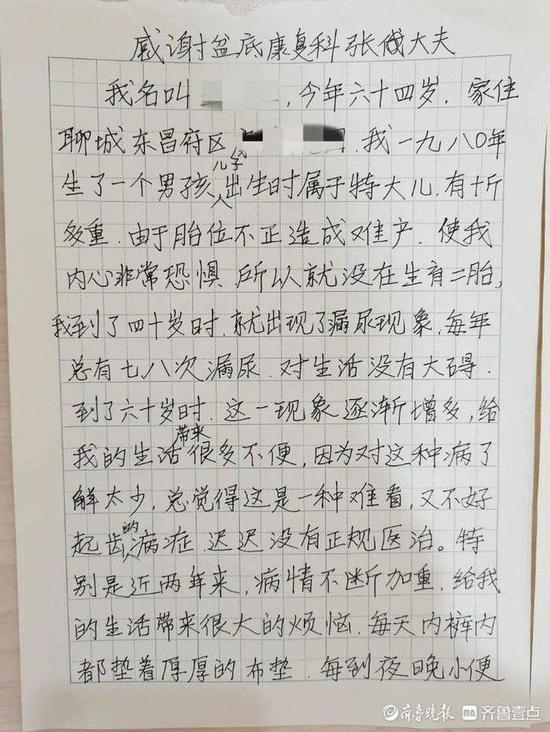 感谢盆底康复科张俄大夫
我名叫，今年六十四岁．家住
聊城东昌府区．我一九八〇年
生了一个男孩儿子出生时属于特大儿．有十斤
多重．由于胎位不正造成难产．使我
内心非常恐惧．所以就没在生育二胎，
我到了四十岁时．就出现了漏尿现象．每年
总有七八次漏尿．对生活没有大碍．
到了六十岁时．这一现象逐渐增多，给
我的生活带来很多不便，因为对这种病了
解太少，总觉得这是一种难看，又不好
起齿的病症．迟迟没有正规医治。特
别是近两年来，病情不断加重．给我
的生活带来很大的烦恼．每天内裤内
都垫着厚厚的布垫．每到夜晚小便
齐鲁晚报 齐鲁壹点